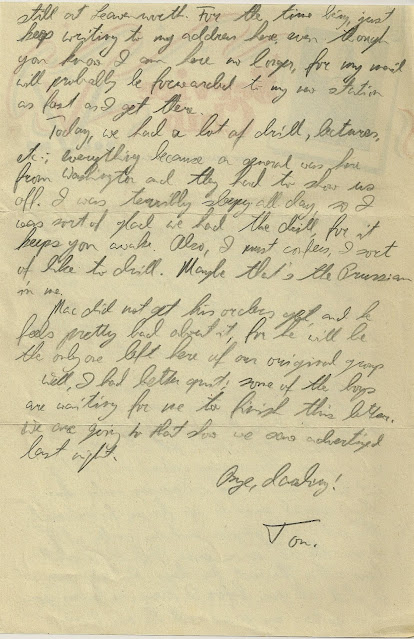 still at Leavenworth. For the time being, just
keep writing to my address here, even though
you know I am here no longer, for my mail
will probably be forwarded to my new station
as fast as I get there.
Today, we had a lot of drill, lectures,
etc.; everything because a general was here
from Washington and they had to show us
off. I was terribly sleepy all day, so I
was sort of glad we had the drill, for it
keeps you awake. Also, I must confess, I sort
of like to drill. Maybe that's the Prussian
in me.
Mac did not get his orders yet, and he
feels pretty bad about it, for he will be
the only one left here of our original group
Well, I had better quit; some of the boys
are waiting for me to finish this letter.
We are going to that show we saw advertized
last night.
Bye, darling!
Tom.